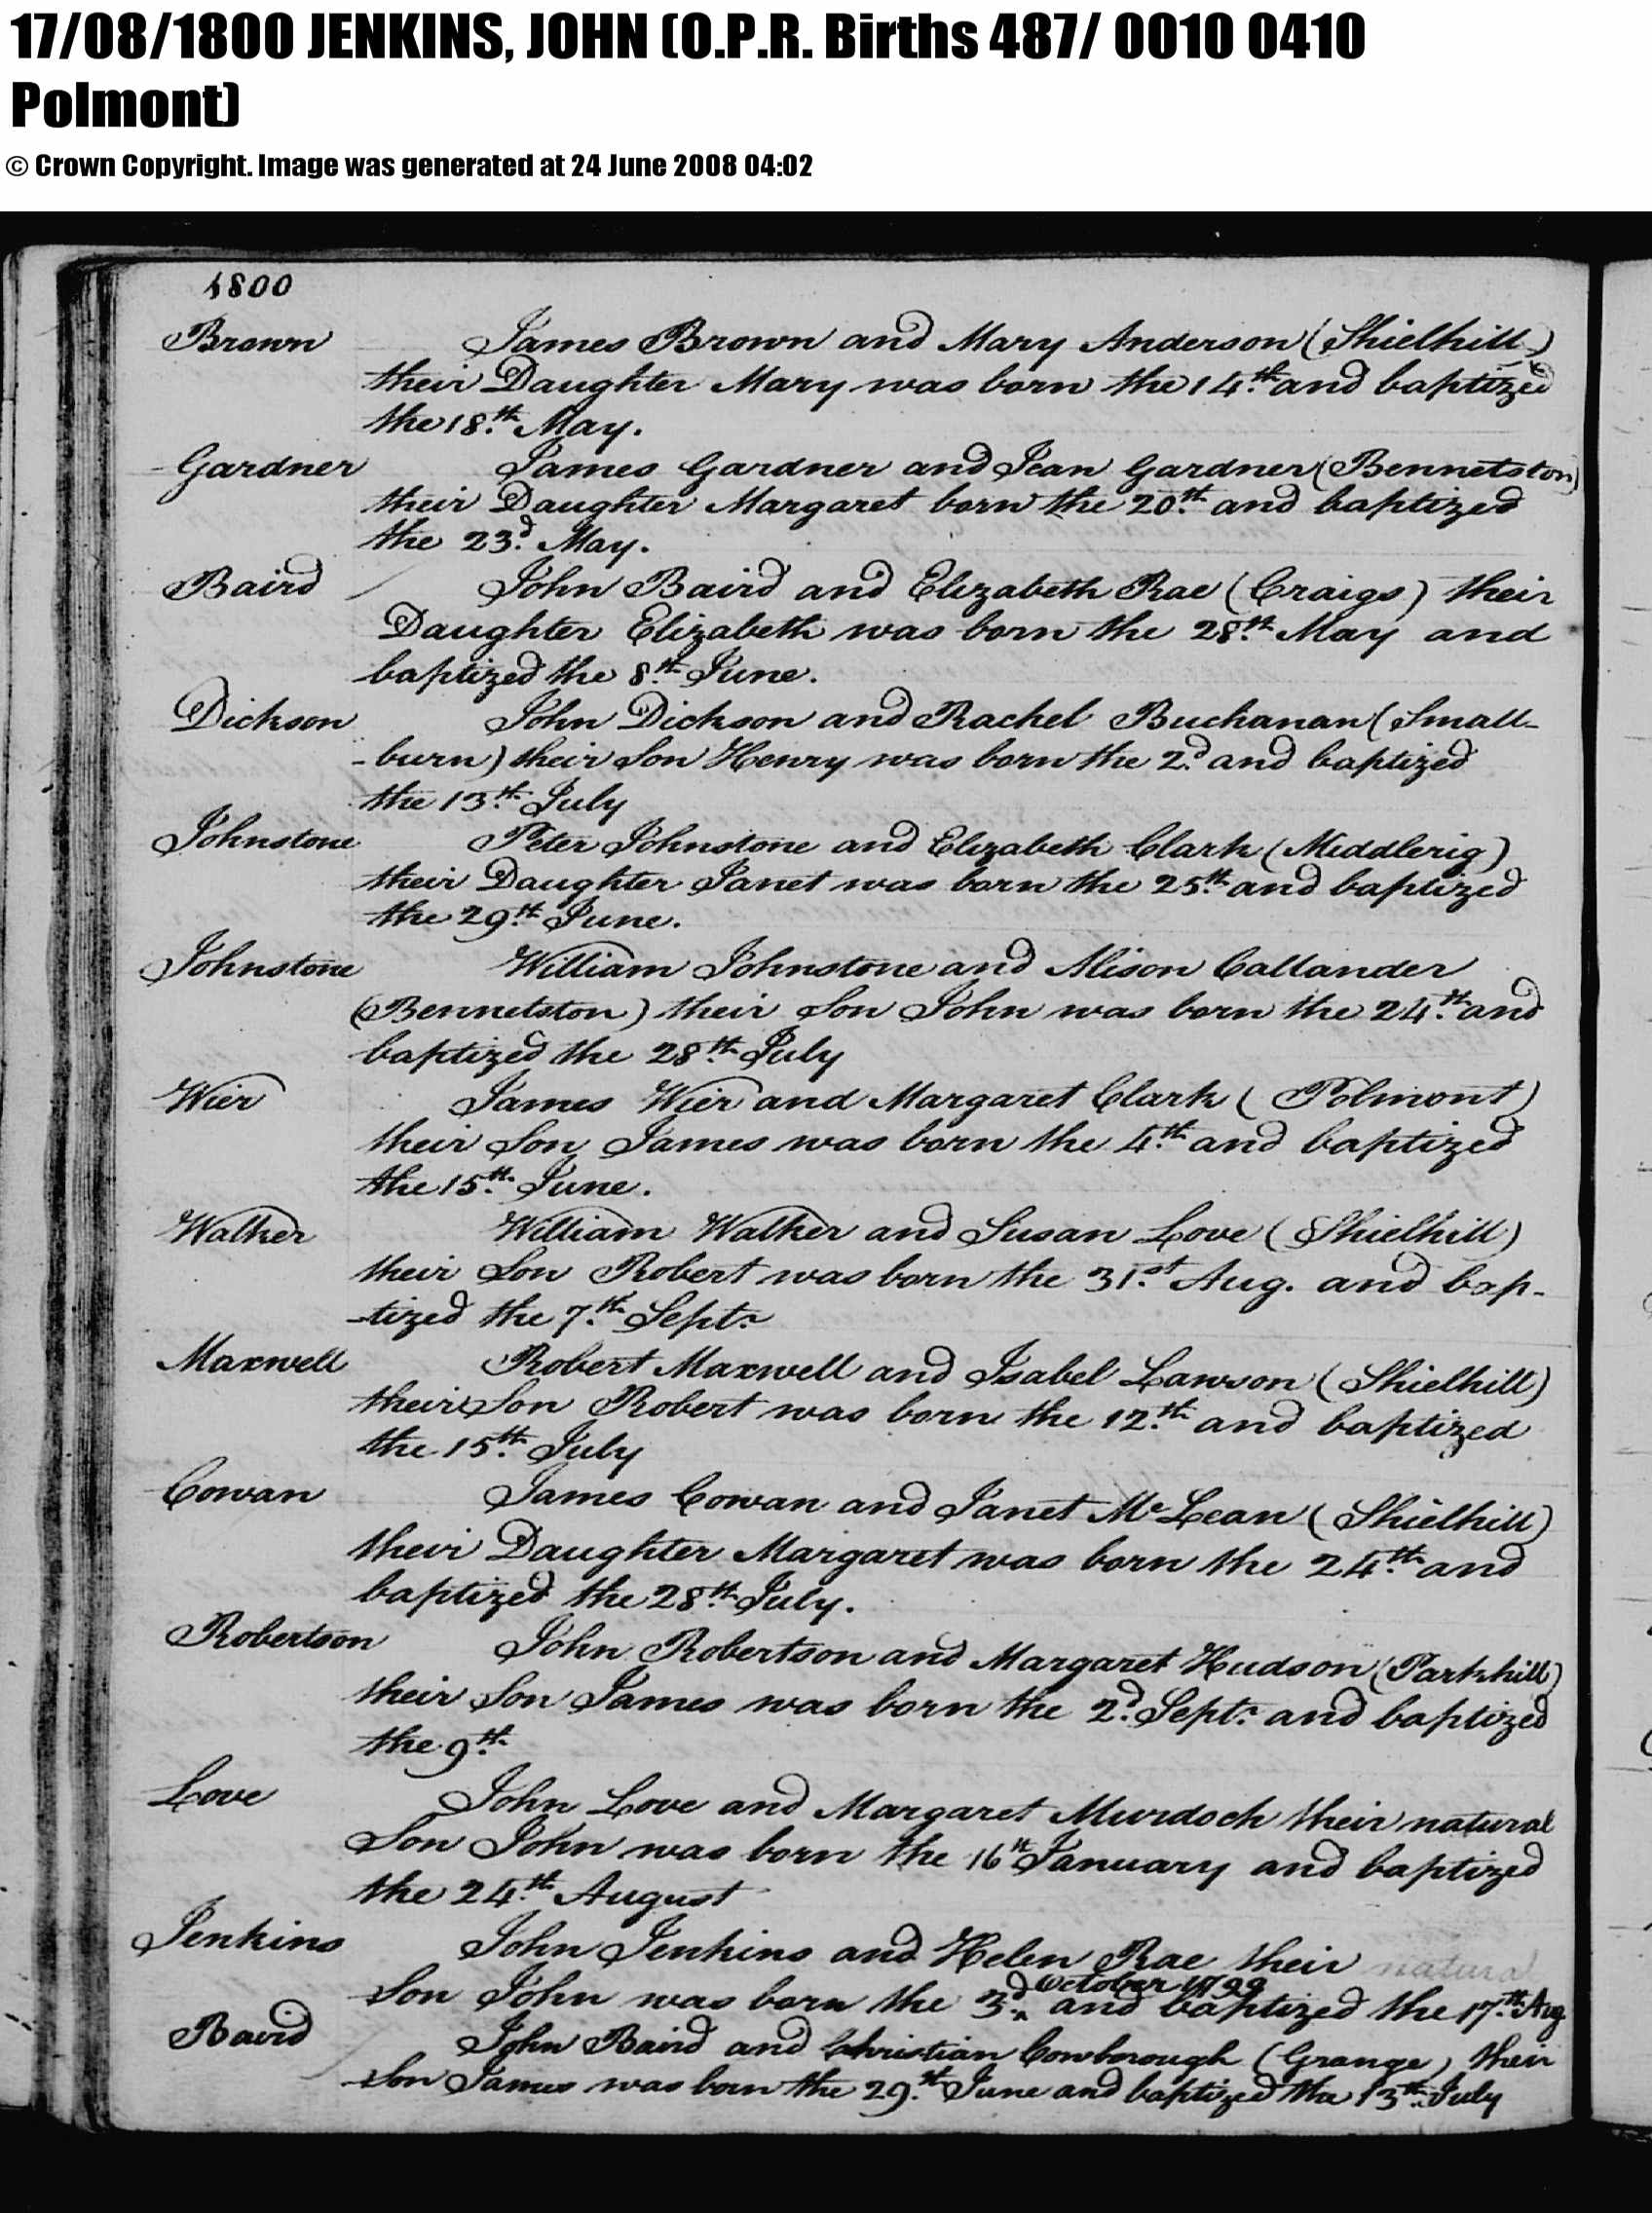 17/08/1800 JENKINS, JOHN (O.P.R. Births 487/ 0010 0410
Polmont)
© Crown Copyright. Image was generated at 24 June 2008 04:02
1800
Brown James Brown and Mary Anderson (Shielhill)
their Daughter Mary was born the 14.th and baptized
the 18.th May.
Gardner James Gardner and Jean Gardner (Bennetston)
their Daughter Margaret born the 20.th and baptized
the 23.d May.
Baird John Baird and Elizabeth Rae (Craigs) their
Daughter Elizabeth was born the 28.th May and
baptized the 8.th June.
Dickson John Dickson and Rachel Buchanan (Small-
-burn) their Son Henry was born the 2.d and baptized
the 13.th July
Johnstone Peter Johnstone and Elizabeth Clark (Middlerig)
their Daughter Janet was born the 25.th and baptized
the 29.th June.
Johnstone William Johnstone and Alison Callander
(Bennetston) their Son John was born the 24.th and
baptized the 28.th July
Wier James Wier and Margaret Clark (Polmont)
their Son James was born the 4.th and baptized
the 15.th June.
Walker William Walker and Susan Love (Shielhill)
their Son Robert was born the 31.st Aug. and bap-
-tized the 7.th Sept.r
Maxwell Robert Maxwell and Isabel Lawson (Shielhill)
their Son Robert was born the 12.th and baptized
the 15.th July
Cowan James Cowan and Janet McLean (Shielhill)
their Daughter Margaret was born the 24.th and
baptized the 28.th July.
Robertson John Robertson and Margaret Hudson (Parkhill)
their Son James was born the 2.d Sept.r and baptized
the 9.th
Love John Love and Margaret Murdoch their natural
Son John was born the 16th January and baptized
the 24.th August
Jenkins John Jenkins and Helen Rae their natural
October 1799
Son John was born the 3.d ^ and baptized the 17.th Aug.
Baird John Baird and Christian Cowborough (Grange) their
Son James was born the 29.th June and baptized the 13.th July